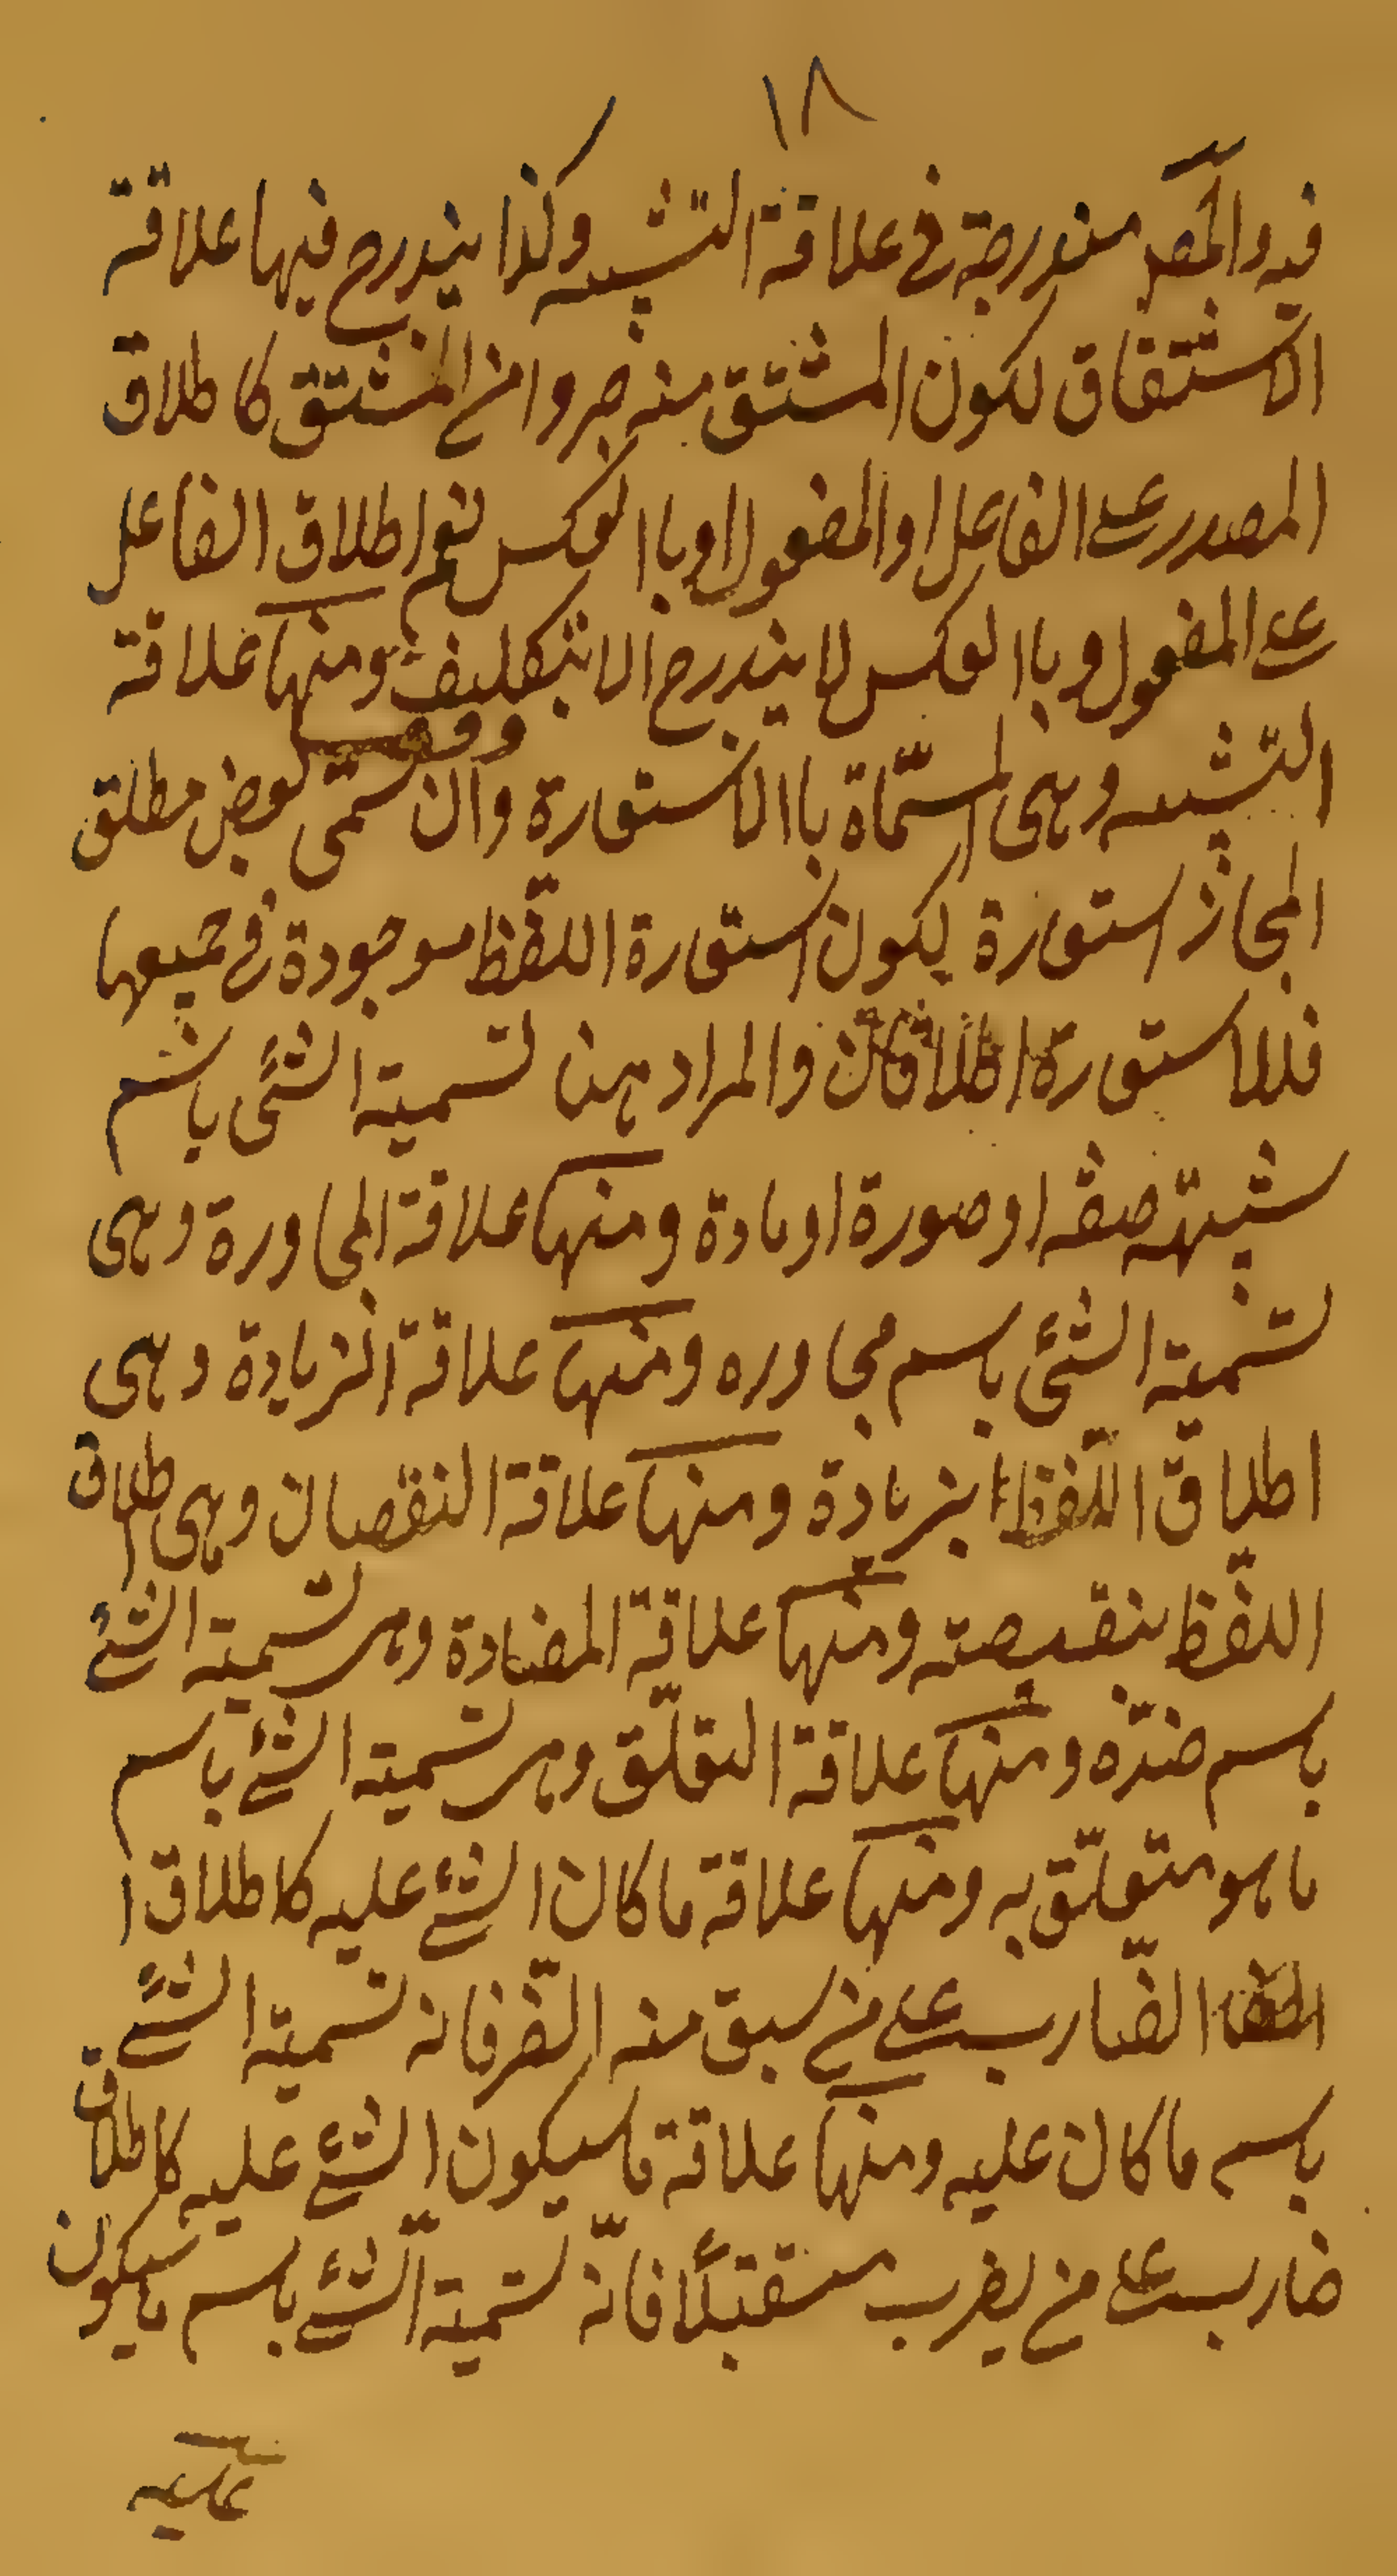 ١٨
فيه والمص مندرجة في علاقة التشبيه وكذا يندرج فيها علاقة
الاشتقاق لكون المشتق منه جزوا من المشتق كاطلاق
المصدر على الفاعل او المفعول او باالعكس نعم اطلاق الفاعل
على المفعول وباالعكس لا يندرج الا بتكليف ومنها علاقة
التشبيه وهي المسمّاة باالاستعارة وان سمّى بعض مطلق
المجاز استعارة لكون استعارة اللفظ موجودة في جميعها
فللاستعارة اطلاقان والمراد هنا تسمية الشئ باسم
شبيهه صفة او صورة او مادة ومنها علاقة المجاورة وهي
تسمية الشئ باسم مجاوره ومنها علاقة الزيادة وهي
اطلاق اللفظ بزيادة ومنها علاقة النقصان وهي اطلاق
اللفظ بنقيصته ومنها علاقة المضادة وهي تسمية الشئ
باسم ضدّه ومنها علاقة التعلّق وهي تسمية الشئ باسم
ما هو متعلّق به ومنها علاقة ما كان الشئ عليه كاطلاق ا
الضارب على من سبق منه الضرب فانه تسمية الشئ
باسم ما كان عليه ومنها علاقة ما سيكون الشئ عليه كاطلاق
ضارب على من يضرب مستقبلاً فانّه تسمية الشئ باسم ما سيكون
عليه